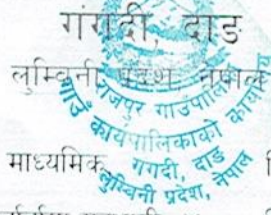 गंगदी, दाङ
लुम्बिनी प्रदेश, नेपाल
राजपुर गाउँपालिका
गाउँ कार्यपालिकाको कार्यालय
गंगदी, दाङ
लुम्बिनी प्रदेश, नेपाल
माध्यमिक